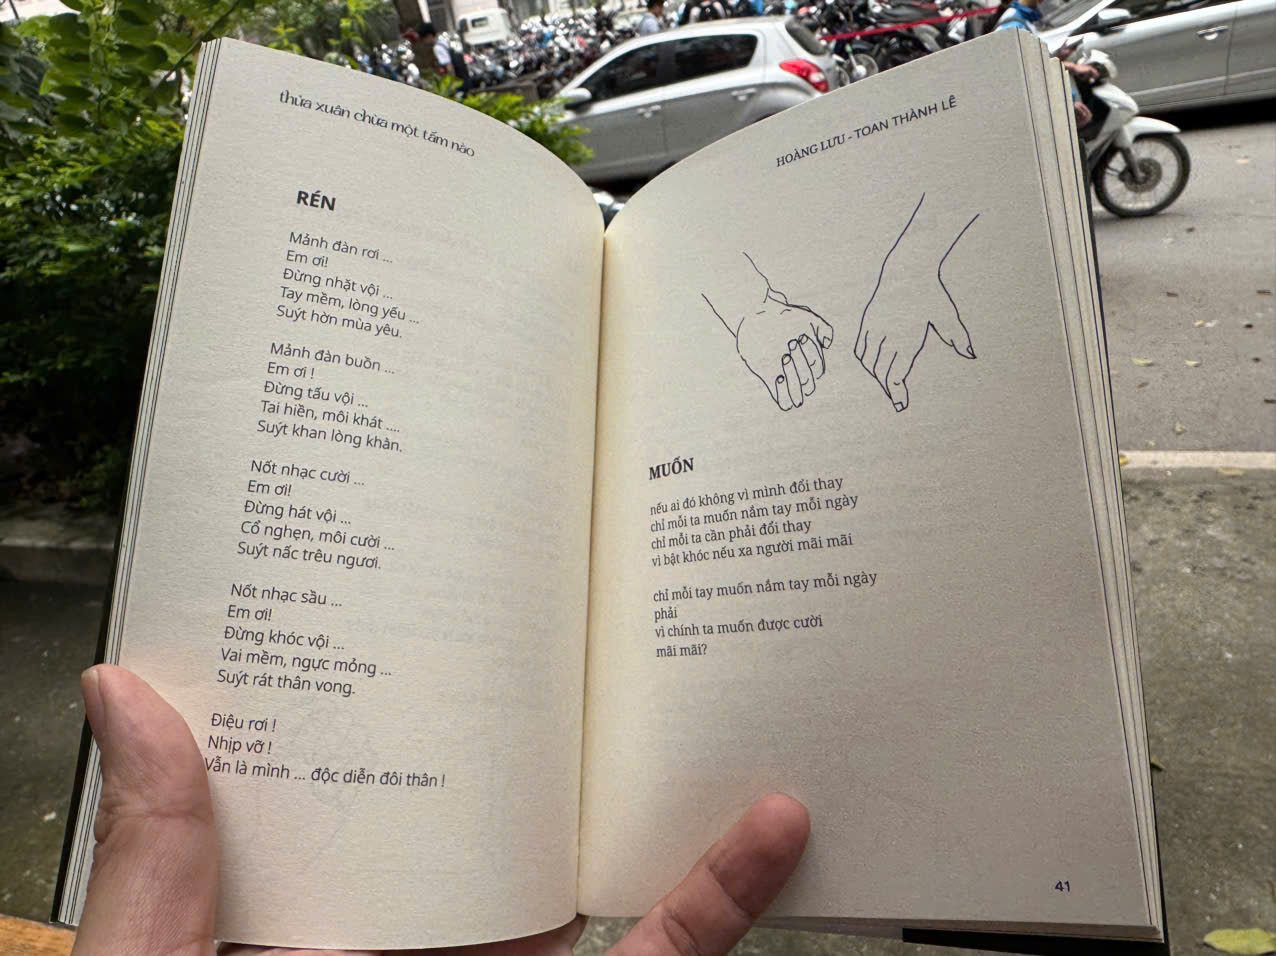 thủa xuân chừa một tấm nào
RÉN
Mảnh đàn rơi ...
Em ơi!
Đừng nhặt vội ...
Tay mềm, lòng yếu ...
Suýt hờn mùa yêu.
Mảnh đàn buồn ...
Em ơi !
Đừng tấu vội ...
Tai hiền, môi khát ....
Suýt khan lòng khàn.
Nốt nhạc cười ...
Em ơi!
Đừng hát vội ...
Cổ nghẹn, môi cười ...
Suýt nấc trêu ngươi.
Nốt nhạc sầu ...
Em ơi!
Đừng khóc vội ...
Vai mềm, ngực mỏng ...
Suýt rát thân vong.
Điệu rơi !
Nhịp vỡ !
Vẫn là mình ... độc diễn đôi thân !
HOÀNG LƯU - TOAN THÀNH LÊ
MUỐN
nếu ai đó không vì mình đổi thay
chỉ mỗi ta muốn nắm tay mỗi ngày
chỉ mỗi ta cần phải đổi thay
vì bật khóc nếu xa người mãi mãi
chỉ mỗi tay muốn nắm tay mỗi ngày
phải
vì chính ta muốn được cười
mãi mãi?
41